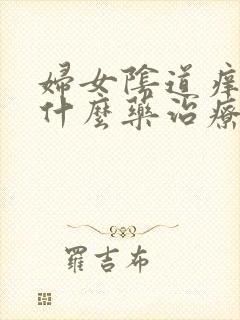 婦女陰道痒
什麼藥治療
羅吉布